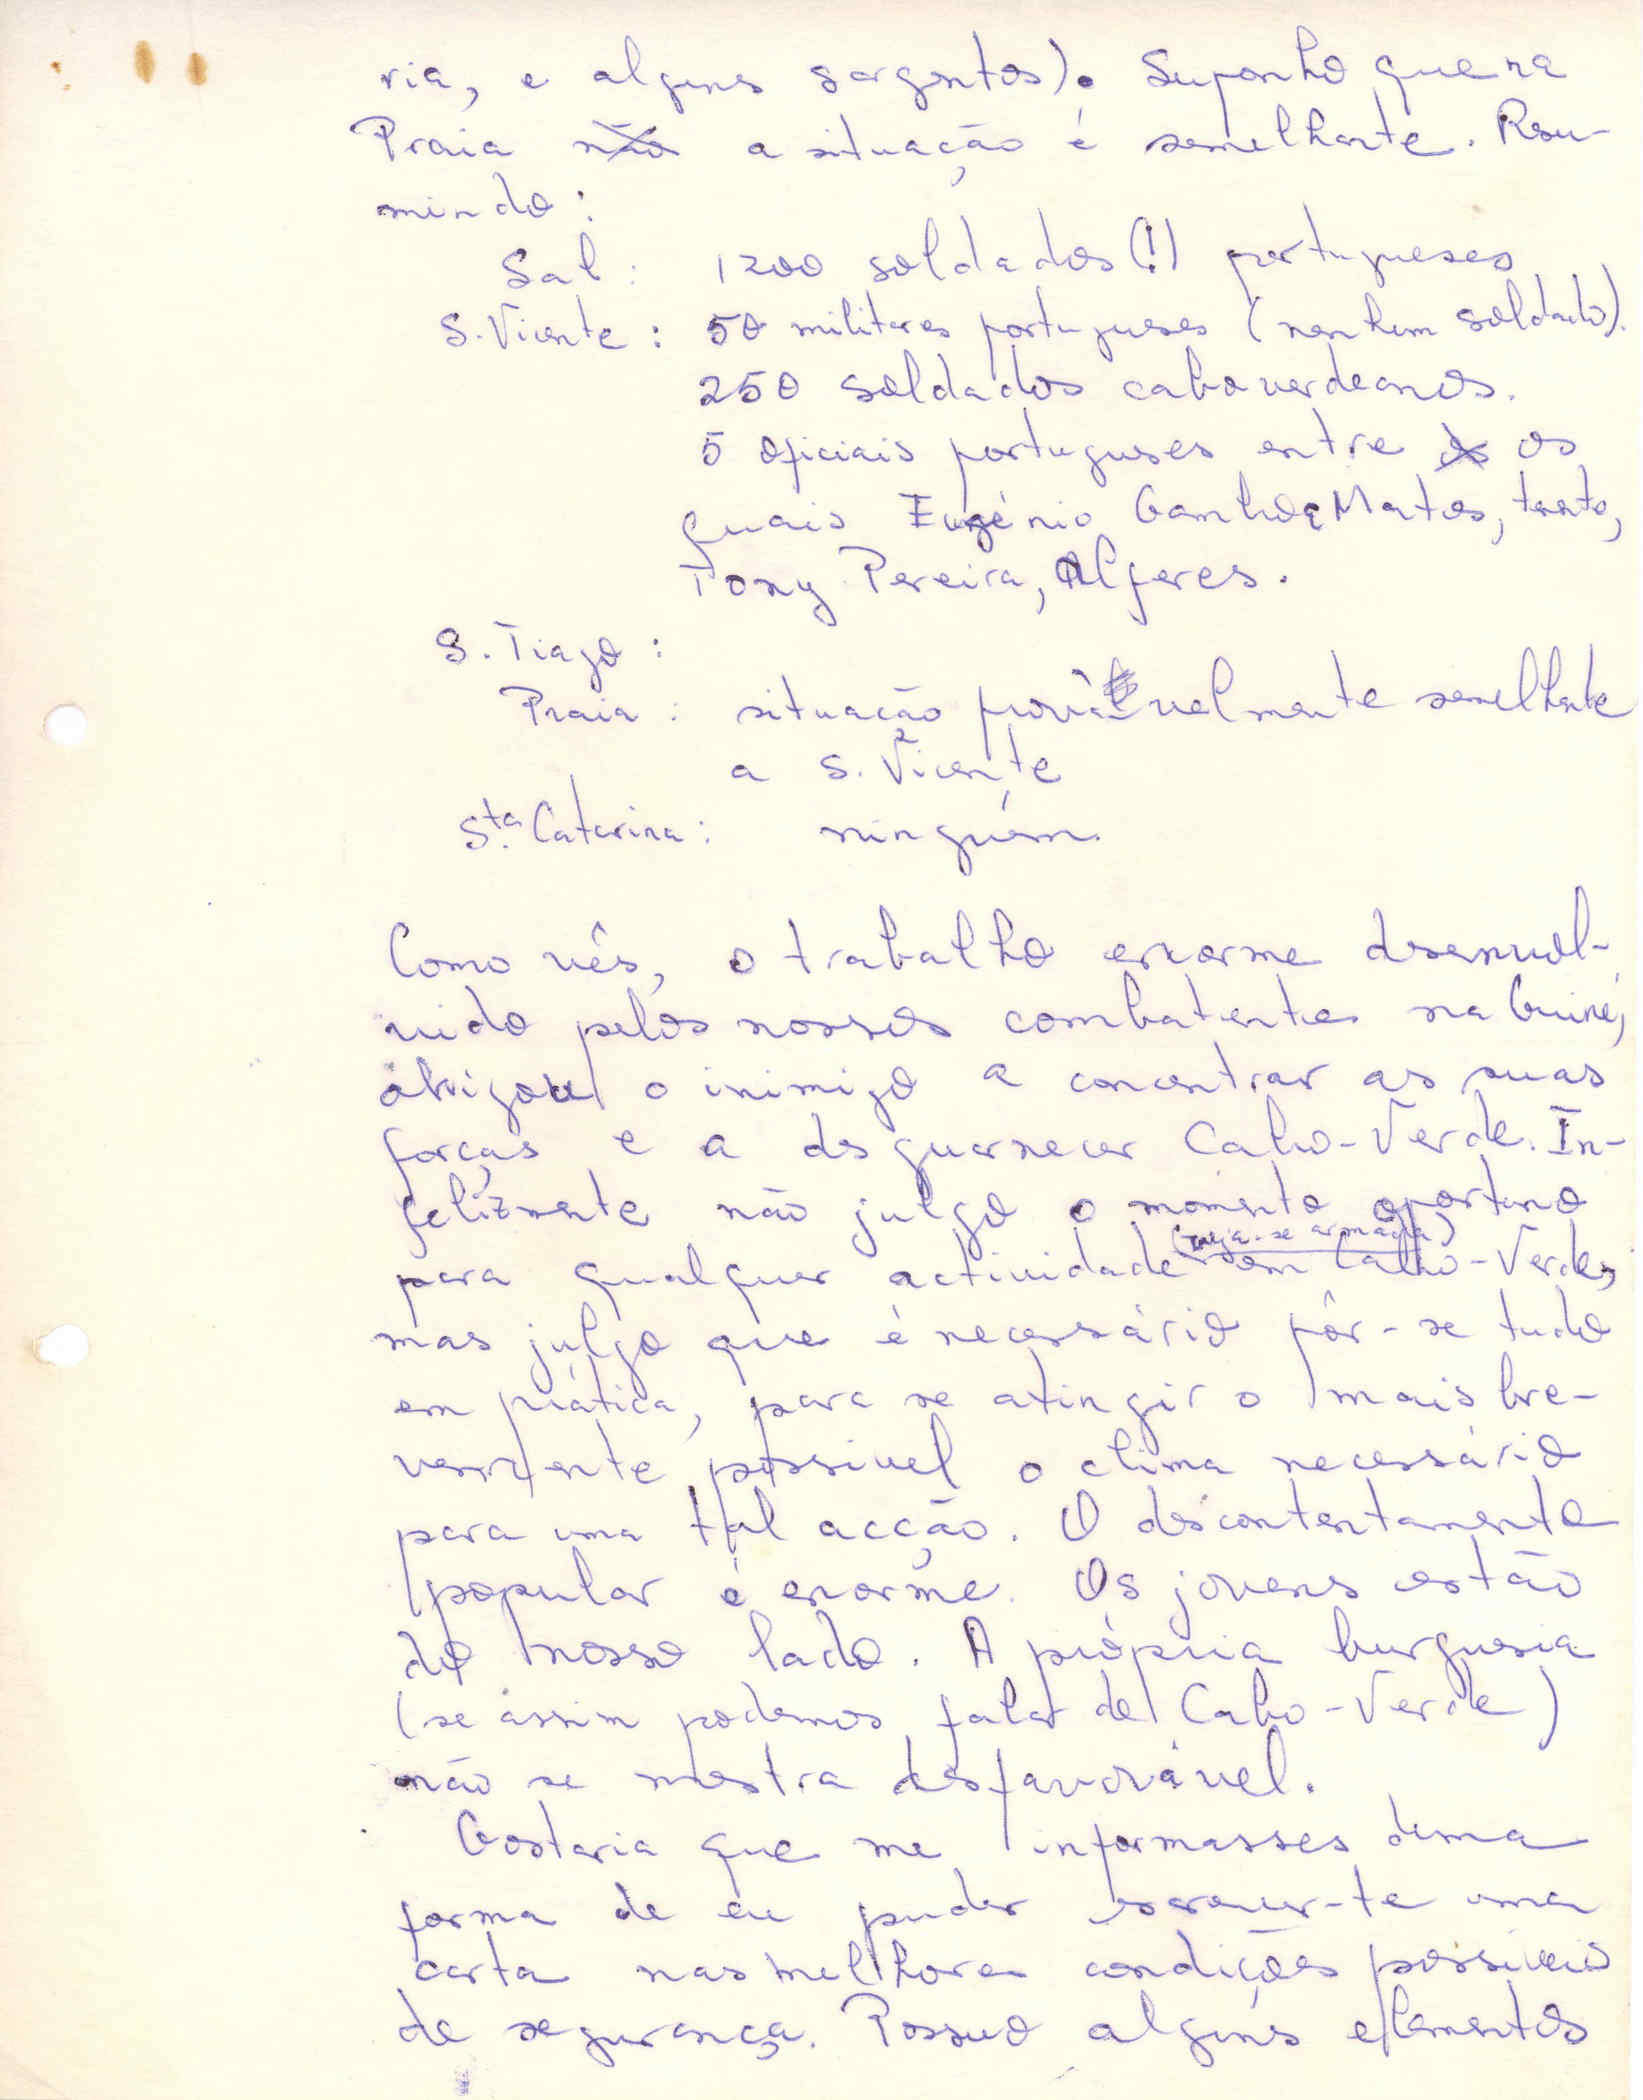 ria, e alguns sargentos). Suponho que na
Praia não a situação é semelhante. Resu-
mindo:
Sal: 1200 soldados (!) portugueses
S. Vicente: 50 militares portugueses (nenhum soldado).
250 soldados caboverdeanos.
5 oficiais portugueses entre os os
quais Eugénio Ganho e Matos, tente,
Tony Pereira, Alferes.
S. Tiago:
Praia: situação provàvelmente semelhante
a S. Vicente
Sta. Catarina: ninguém
Como vês, o trabalho enorme desenvol-
vido pelos nossos combatentes na Guiné,
obrigou o inimigo a concentrar as suas
forças e a desguarnecer Cabo-Verde. In-
felizmente não julgo o momento oportuno
(veja-se armada)
para qualquer actividade em Cabo-Verde,
mas julgo que é necessário pôr-se tudo
em prática, para se atingir o mais bre-
vemente possivel o clima necessário
para uma tal acção. O descontentamento
popular é enorme. Os jovens estão
do nosso lado. A própria burguesia
(se assim podemos falar de Cabo-Verde)
não se mostra desfavorável.
Gostaria que me informasses duma
forma de eu puder escrever-te uma
carta nas melhores condições possiveis
de segurança. Possuo alguns elementos